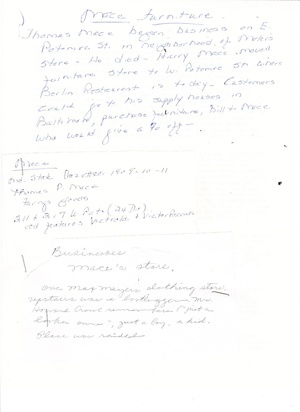 Mace Furniture.
Thomas Mace began business on E.
Potomac St. in neighborhood of Meters
store - He died - Harry Mace moved
furniture store to W. Potomac St. where
Berlin Restaurant is today - Customers
could go to his supply houses in
Baltimore, purchase furniture, bill to Mace
who would give a % off -
Mace
Ind. Stat. Dec 1909-10-11
Thomas P. Mace
Fancy goods
215 + 217 W. Poto (24 Pho)
ad features Victrola + Victor Records
Businesses
Mace's store.
one Max Meyer's clothing store.
upstairs was a bootlegger - Mr.
Howard Crout ("just a
", just a boy, a kid.
Place was raided